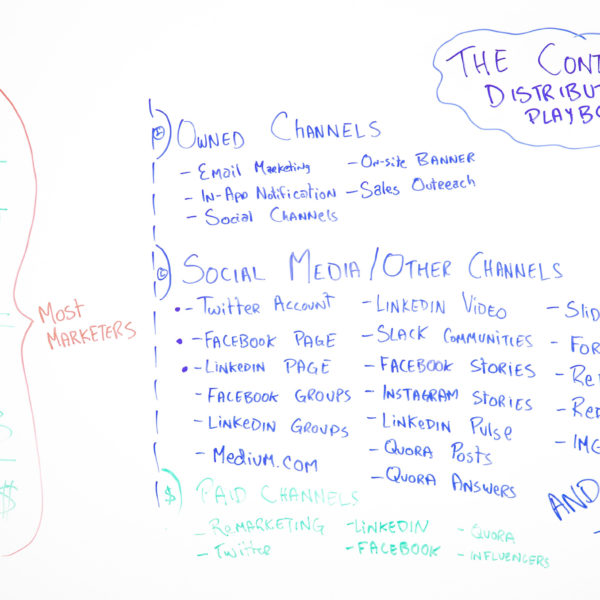 THE CONT
DISTRIBUT
PLAYBO
OWNED CHANNELS
- EMAIL MARKETING
- ON-SITE BANNER
- IN-APP NOTIFICATION
- SALES OUTREACH
- SOCIAL CHANNELS
SOCIAL MEDIA / OTHER CHANNELS
- TWITTER ACCOUNT
- FACEBOOK PAGE
- LINKEDIN PAGE
- FACEBOOK GROUPS
- LINKEDIN GROUPS
- MEDIUM.COM
- LINKEDIN VIDEO
- SLACK COMMUNITIES
- FACEBOOK STORIES
- INSTAGRAM STORIES
- LINKEDIN PULSE
- QUORA POSTS
- QUORA ANSWERS
- SLID
- FOR
- RE
- RED
- IMG
AND
MOST
MARKETERS
$
$ PAID CHANNELS
- REMARKETING
- TWITTER
- LINKEDIN
- FACEBOOK
- QUORA
- INFLUENCERS